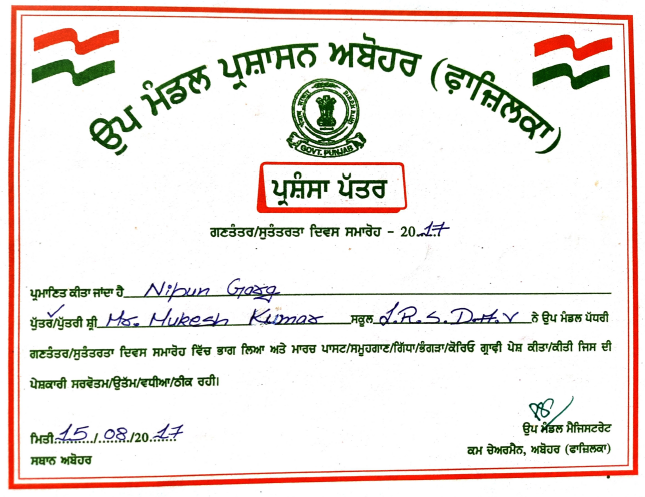 ਉਪ ਮੰਡਲ ਪ੍ਰਸ਼ਾਸਨ ਅਬੋਹਰ (ਫ਼ਾਜ਼ਿਲਕਾ)
GOVT. PUNJAB
ਪ੍ਰਸ਼ੰਸਾ ਪੱਤਰ
ਗਣਤੰਤਰ/ਸੁਤੰਤਰਤਾ ਦਿਵਸ ਸਮਾਰੋਹ - 2017
ਪ੍ਰਮਾਣਿਤ ਕੀਤਾ ਜਾਂਦਾ ਹੈ Nipun Garg
ਪੁੱਤਰ/ਪੁੱਤਰੀ ਸ਼੍ਰੀ Mr. Mukesh Kumar ਸਕੂਲ L.R.S.D.A.V ਨੇ ਉਪ ਮੰਡਲ ਪੱਧਰੀ
ਗਣਤੰਤਰ/ਸੁਤੰਤਰਤਾ ਦਿਵਸ ਸਮਾਰੋਹ ਵਿੱਚ ਭਾਗ ਲਿਆ ਅਤੇ ਮਾਰਚ ਪਾਸਟ/ਸਮੂਹਗਾਣ/ਗਿੱਧਾ/ਭੰਗੜਾ/ਕੋਰਿਓ ਗ੍ਰਾਫੀ ਪੇਸ਼ ਕੀਤਾ/ਕੀਤੀ ਜਿਸ ਦੀ
ਪੇਸ਼ਕਾਰੀ ਸਰਵੋਤਮ/ਉਤੱਮ/ਵਧੀਆ/ਠੀਕ ਰਹੀ।
ਮਿਤੀ 15/08/2017
ਸਥਾਨ ਅਬੋਹਰ
ਉਪ ਮੰਡਲ ਮੈਜਿਸਟਰੇਟ
ਕਮ ਚੇਅਰਮੈਨ, ਅਬੋਹਰ (ਫਾਜ਼ਿਲਕਾ)